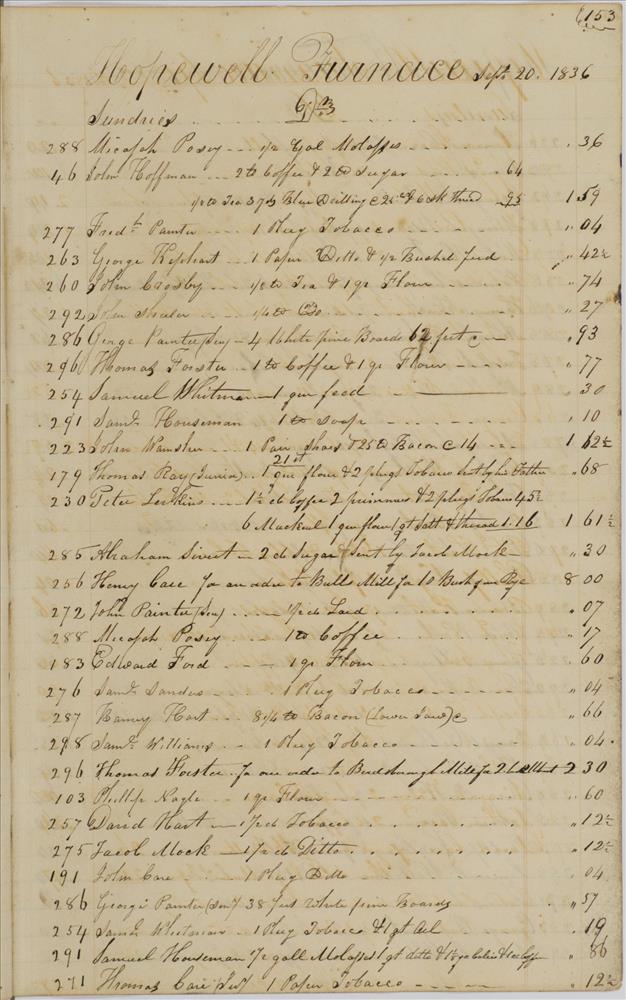 153
Hopewell Furnace Sept. 20. 1836
Sundries Drs
288 Micajah Posey 1/2 Gal Molasses " 36
46 John Hoffman 2 lb Coffee & 2 lb Sugar 64
1/2 lb Tea 3 yds Blue Drilling @ 25 cts & 6 sk Thread 95 1.59
277 Fredk Painter 1 Plug Tobacco " 04
263 George Kephart 1 Paper Ditto & 1/2 Bushel feed " 42 1/2
260 John Crosby 1/2 lb Tea & 1 qr Flour " 74
292 John Sheeler 1/4 lb Do " 27
286 George Painter (Sen) 4 White pine Boards 62 feet @ " 93
296 Thomas Forster 1 lb Coffee & 1 qr Flour " 77
254 Samuel Whitman 1 qr feed " 30
291 Saml Houseman 1 lb Soap " 10
223 John Wamsher 1 Pair Shoes & 25 lb Bacon @ 14 1 62 1/2
21st
179 Thomas Ray (Junior) 1 qr flour & 2 plugs Tobacco sent by his Father " 68
230 Peter 1 1/2 lb Coffee 2 & 2 plugs Tobacco 45 1/2
6 Mackerel 1 qr flour 1 qt Salt & thread 1.16 1 61 1/2
285 Abraham Sivert 2 lb Sugar sent by Jacob Mock " 30
256 Henry Care for an order to Bulls Mill for 10 Bush Rye 8 00
272 John Painter (Sen) 1/2 lb Lard " 07
288 Micajah Posey 1 lb Coffee " 17
183 Edward Ford 1 qr Flour " 60
276 Saml Sanders 1 Plug Tobacco " 04
287 Harvey Hart 8 1/4 lb Bacon (Lower Jaw) @ " 66
298 Saml Williams 1 Plug Tobacco " 04
296 Thomas Forster for one order to Birdsborough Mill for 2 b Wheat 2 30
103 Phillip Nagle 1 qr Flour " 60
257 David Hart 1/2 lb Tobacco " 12 1/2
275 Jacob Mock 1/2 lb Ditto " 12 1/2
191 John Care 1 Plug Ditto " 04
286 George Painter (Sen) 38 feet White pine Boards " 57
254 Saml Whitman 1 Plug Tobacco & 1 qt " 19
291 Samuel Houseman 1/2 gall Molasses 1 qt ditto & " 86
271 Thomas Care (Jus) 1 Paper Tobacco " 12 1/2